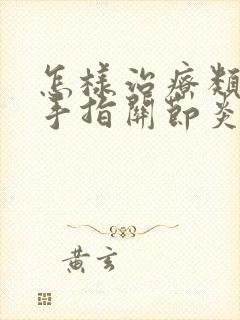 怎樣治療類
手指關節炎
黃玄